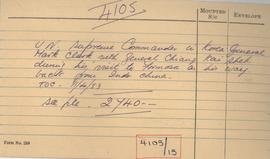 4105
MOUNTED
S/C
ENVELOPE
U.N. Supreme Commander in Korea General
Mark Clark with General Chiang Kai Shek
during his visit to Formosa on his way
back from Indo China.
TOC. /4/53
See file 2940
Form No. 260
4105/15